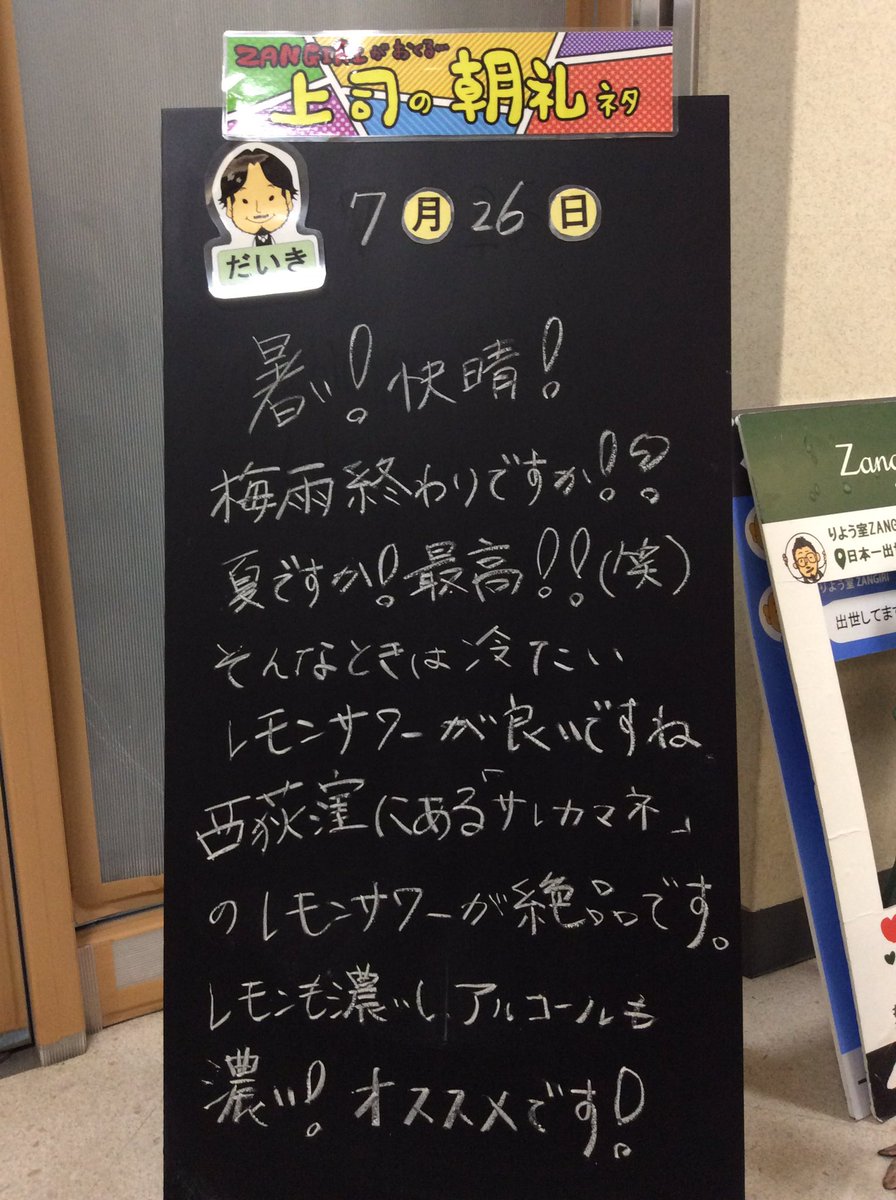 ZANGIRIがおくる…
上司の朝礼ネタ
だいき
7月26日
暑い!快晴!
梅雨終わりですか!?
夏ですか!最高!!(笑)
そんなときは冷たい
レモンサワーが良いですね
西荻窪にある「サレカマネ」
のレモンサワーが絶品です。
レモンも濃いしアルコールも
濃い!オススメです!
Zang
りよう室ZANG
日本一出世
りよう室ZANGIRI
出世してます